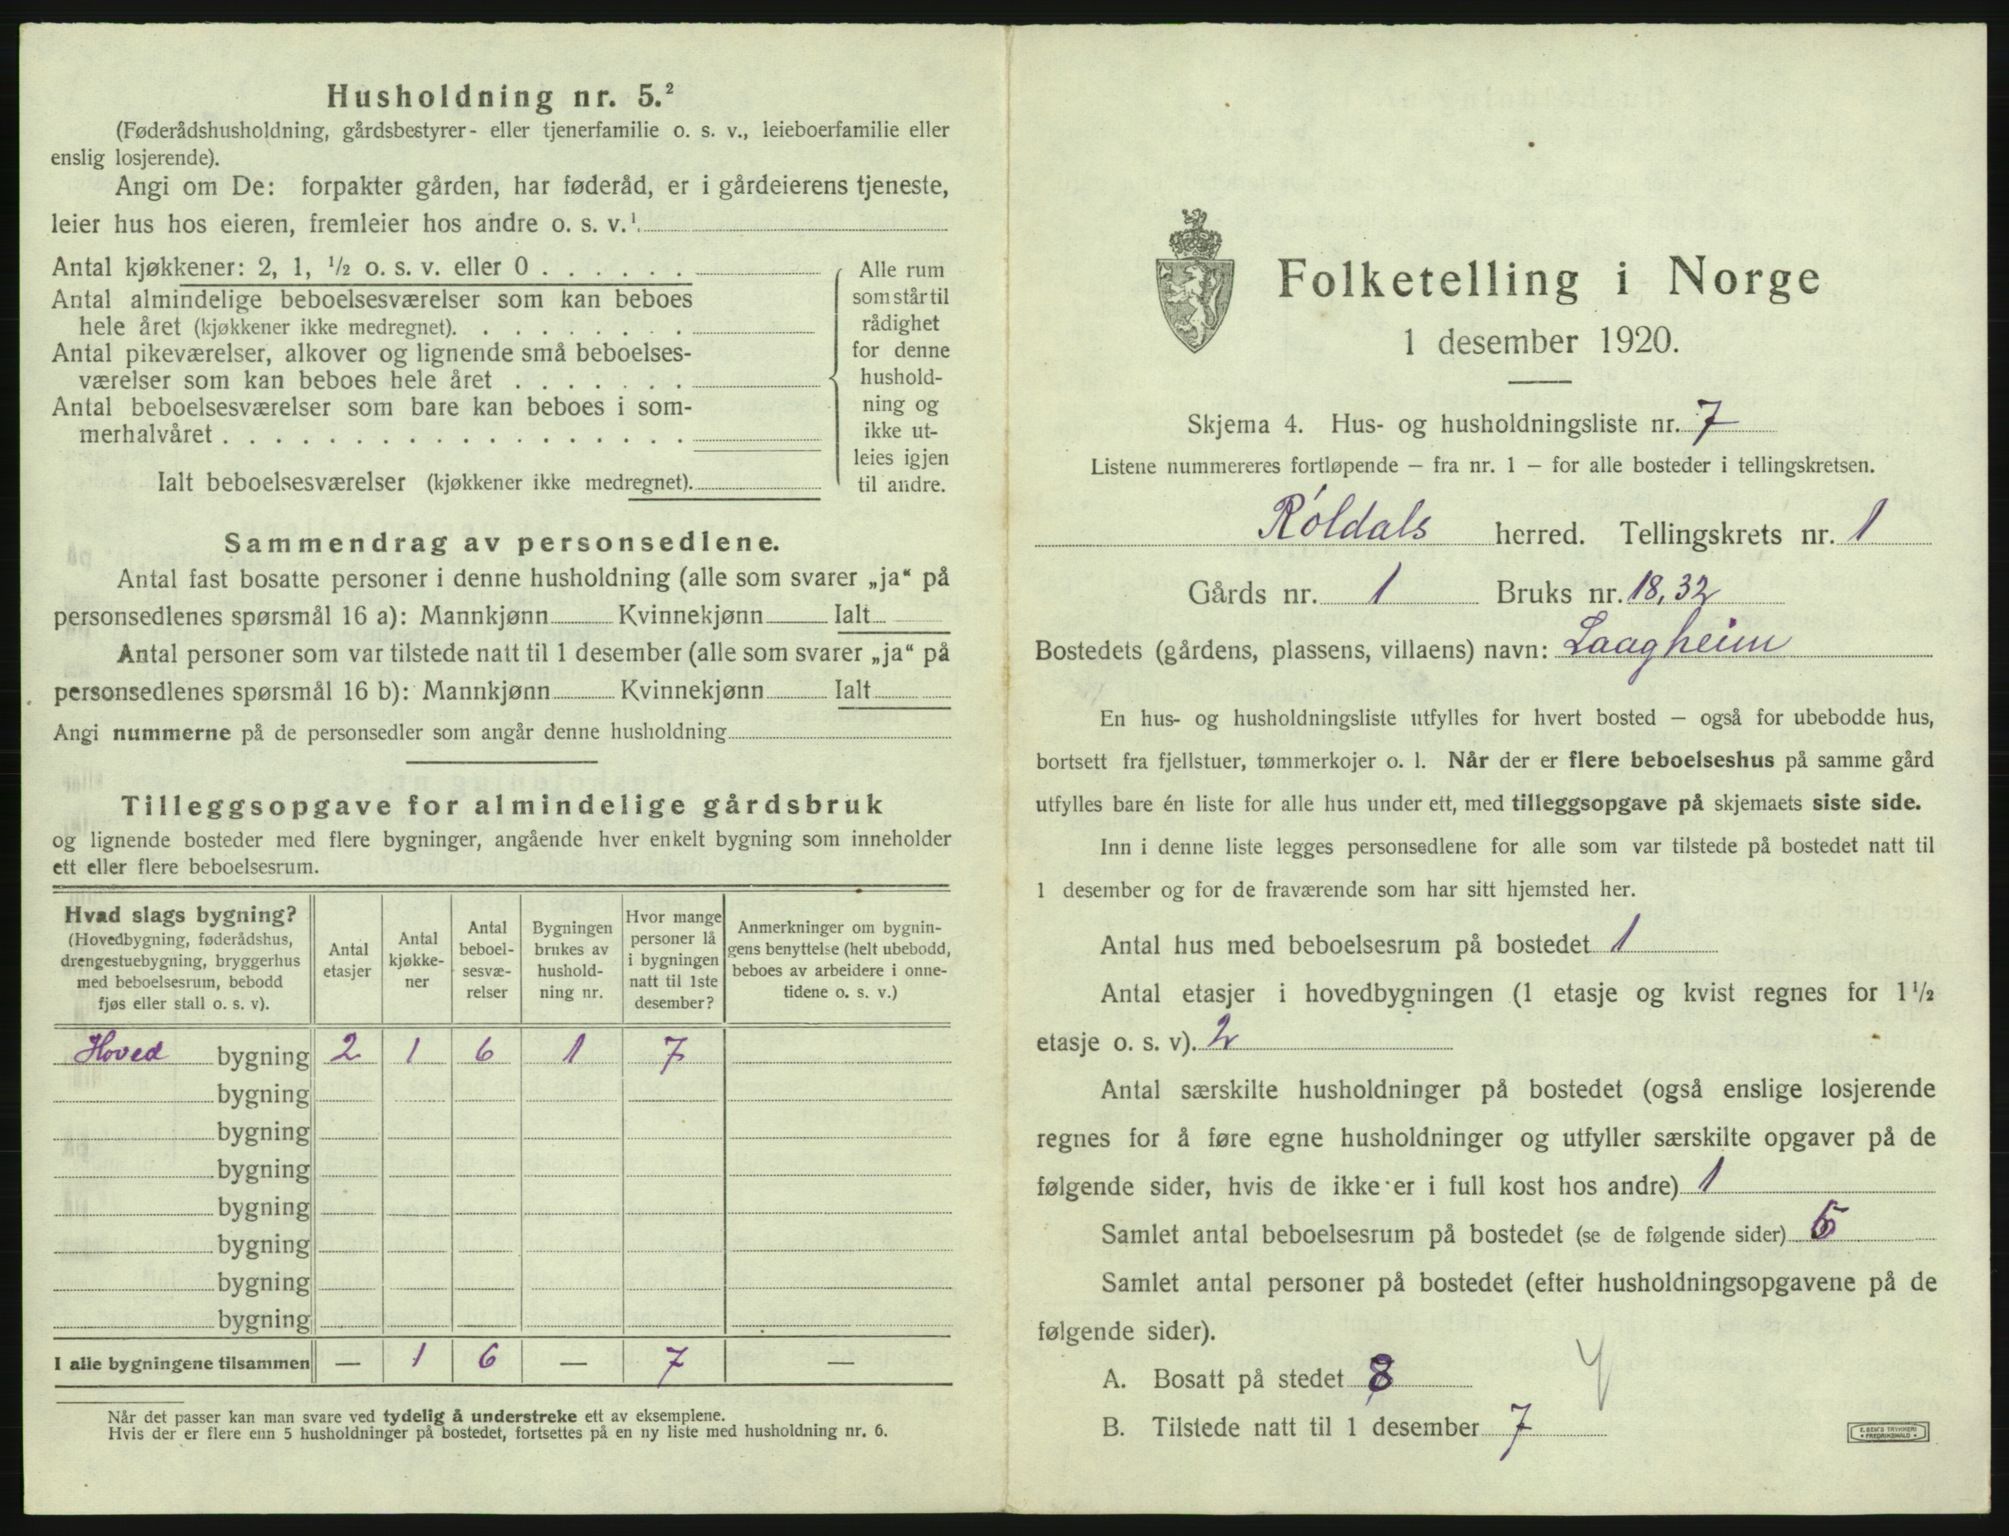 Husholdning nr. 5.²
(Føderådshusholdning, gårdsbestyrer- eller tjenerfamilie o. s. v., leieboerfamilie eller
enslig losjerende).
Angi om De: forpakter gården, har føderåd, er i gårdeierens tjeneste,
leier hus hos eieren, fremleier hos andre o. s. v.¹
Antal kjøkkener: 2, 1, ½ o. s. v. eller 0 . . . . . .
Antal almindelige beboelsesværelser som kan beboes
hele året (kjøkkener ikke medregnet). . . . . . . . .
Antal pikeværelser, alkover og lignende små beboelses-
værelser som kan beboes hele året . . . . . . .
Antal beboelsesværelser som bare kan beboes i som-
merhalvåret . . . . . . . . . . . . . . . . . .
Ialt beboelsesværelser (kjøkkener ikke medregnet).
Alle rum
som står til
rådighet
for denne
hushold-
ning og
ikke ut-
leies igjen
til andre.
Sammendrag av personsedlene.
Antal fast bosatte personer i denne husholdning (alle som svarer „ja“ på
personsedlenes spørsmål 16 a): Mannkjønn Kvinnekjønn Ialt
Antal personer som var tilstede natt til 1 desember (alle som svarer „ja“ på
personsedlenes spørsmål 16 b): Mannkjønn Kvinnekjønn Ialt
Angi nummerne på de personsedler som angår denne husholdning
Tilleggsopgave for almindelige gårdsbruk
og lignende bosteder med flere bygninger, angående hver enkelt bygning som inneholder
ett eller flere beboelsesrum.
Hvad slags bygning?
(Hovedbygning, føderådshus,
drengestuebygning, bryggerhus
med beboelsesrum, bebodd
fjøs eller stall o. s. v).
Antal
etasjer
Antal
kjøkke-
ner
Antal
beboel-
sesvæ-
relser
Bygningen
brukes av
hushold-
ning nr.
Hvor mange
personer lå
i bygningen
natt til 1ste
desember?
Anmerkninger om bygnin-
gens benyttelse (helt ubebodd,
beboes av arbeidere i onne-
tidene o. s. v.)
Hoved bygning 2 1 6 1 7
bygning
bygning
bygning
bygning
bygning
bygning
bygning
I alle bygningene tilsammen — 1 6 — 7 —
Når det passer kan man svare ved tydelig å understreke ett av eksemplene.
Hvis der er flere enn 5 husholdninger på bostedet, fortsettes på en ny liste med husholdning nr. 6.
Folketelling i Norge
1 desember 1920.
Skjema 4. Hus- og husholdningsliste nr. 7
Listene nummereres fortløpende – fra nr. 1 – for alle bosteder i tellingskretsen.
Röldals herred. Tellingskrets nr. 1
Gårds nr. 1 Bruks nr. 18, 32
Bostedets (gårdens, plassens, villaens) navn: Laagheim
En hus- og husholdningsliste utfylles for hvert bosted – også for ubebodde hus,
bortsett fra fjellstuer, tømmerkojer o. l. Når der er flere beboelseshus på samme gård
utfylles bare én liste for alle hus under ett, med tilleggsopgave på skjemaets siste side.
Inn i denne liste legges personsedlene for alle som var tilstede på bostedet natt til
1 desember og for de fraværende som har sitt hjemsted her.
Antal hus med beboelsesrum på bostedet 1
Antal etasjer i hovedbygningen (1 etasje og kvist regnes for 1½
etasje o. s. v). 2
Antal særskilte husholdninger på bostedet (også enslige losjerende
regnes for å føre egne husholdninger og utfyller særskilte opgaver på de
følgende sider, hvis de ikke er i full kost hos andre) 1
Samlet antal beboelsesrum på bostedet (se de følgende sider) 6
Samlet antal personer på bostedet (efter husholdningsopgavene på de
følgende sider).
A. Bosatt på stedet 8
B. Tilstede natt til 1 desember 7
E. SEM'S TRYKKERI
FREDRIKSHALD